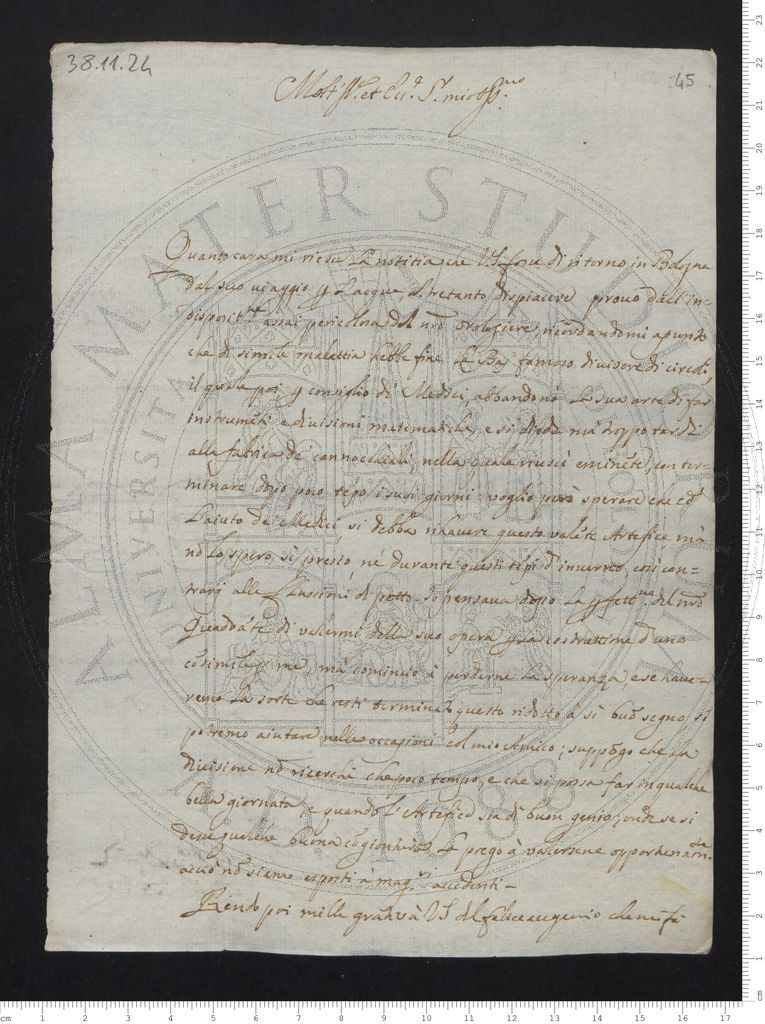 38.11.24
45
Molt' Ill.re et Ecc.te S.r mio oss.mo
Quanto cara mi riesce la notitia che V.S. fosse di ritorno in Bologna
dal suo viaggio p l'acque, altretanto dispiacere provo dall'in-
disposit.ne assai pericolosa del nrõ orologiere ricordandomi apunto
che di simile malattia hebbe fine famoso divisore di circoli,
il quale poi, p consiglio di Medici, abbandonò la sua arte di far
instrumẽti e divisioni matematiche, e si diede mà troppo tardi
alla fabrica de cannocchiali nella quale riuscì eminẽte, con ter-
minare dopo poco tẽpo i suoi giorni: voglio però sperare che cõ
l'aiuto de Medici si debba rihavere questo valẽte Artefice mà
nõ lo spero si presto né durante questi tẽpi d'inverno cosi con-
trarij alle flussioni di petto. Io pensava dopo la pfett.ne del nrõ
Quadrãte di valermi della sua opera p la costruttione d'uno
cõsimile p me, mà comincio à perderne la speranza, e se have-
remo la sorte che resti terminato questo ridotto à si buõ segno, si
potremo aiutare nelle occasioni col mio Amico; suppõgo che la
divisione nõ ricerchi che poco tempo, e che si possa far in qualche
bella giornata, e quando l'Artefice sia di buon genio, onde se si
desse qualche buona cõgiontura la prego à valersene opportunam.te
acciò nõ siamo esposti à mag.ri accidenti-
Rendo poi mille gratie à V.S. del felice augurio che mi fà
ALMA MATER STUDIORUM
UNIVERSITÀ
A.D. 1088